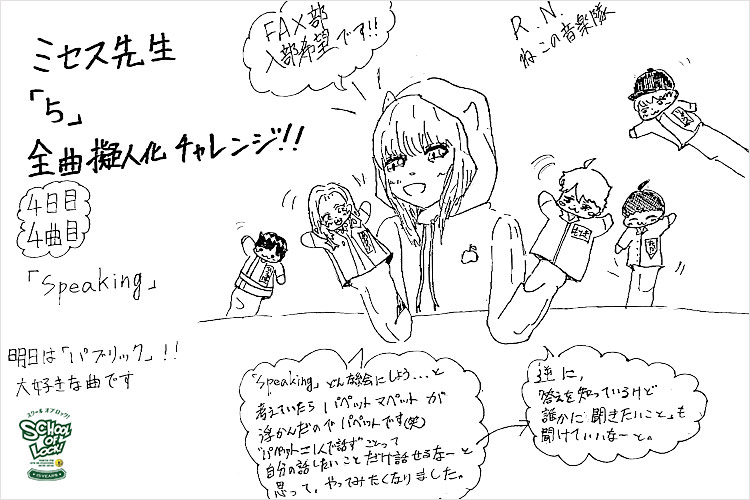 ミセス先生
「5」
全曲擬人化チャレンジ!!
4日目
4曲目
「Speaking」
明日は「パブリック」!!
大好きな曲です
スクールオブロック!
SCHOOL
OF
LOCK!
FAX部
入部希望です!!
R.N.
ねこの音楽隊
「Speaking」どんな絵にしよう…と
考えていたらパペットマペットが
浮かんだのでパペットです(笑)
自分の話したいことだけ話せるなーと
思って。やってみたくなりました。
逆に、
答えを知っているけど
誰かに聞きたいこと」も
聞けていいなーと。